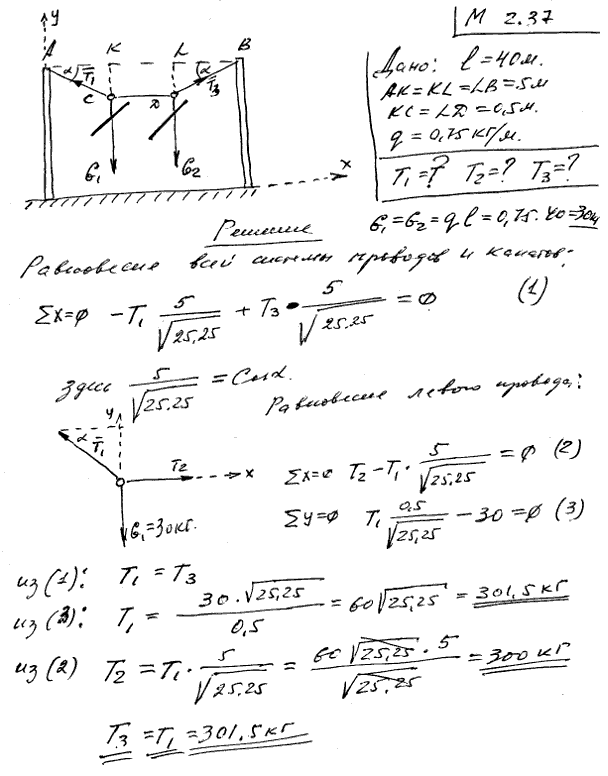 М 2.37
y
A K L B
α T₁ α T₃
C D
G₁ G₂
x
Дано: l = 40 м.
AK = KL = LB = 5 м
KC = LD = 0,5 м.
q = 0,75 кг/м.
T₁ = ? T₂ = ? T₃ = ?
G₁ = G₂ = q l = 0,75 · 40 = 30 кг
Решение
Равновесие всей системы проводов и канатов:
Σx=0 -T₁ 5/√25,25 + T₃ · 5/√25,25 = 0 (1)
Здесь 5/√25,25 = Cosα.
Равновесие левого провода:
y
α T₁
T₂ x
G₁ = 30 кг.
Σx=0 T₂ - T₁ · 5/√25,25 = 0 (2)
Σy=0 T₁ 0,5/√25,25 - 30 = 0 (3)
из (1): T₁ = T₃
из (3): T₁ = 30 · √25,25 / 0,5 = 60√25,25 = 301,5 кг
из (2) T₂ = T₁ · 5/√25,25 = 60 √25,25 · 5 / √25,25 = 300 кг
T₃ = T₁ = 301,5 кг